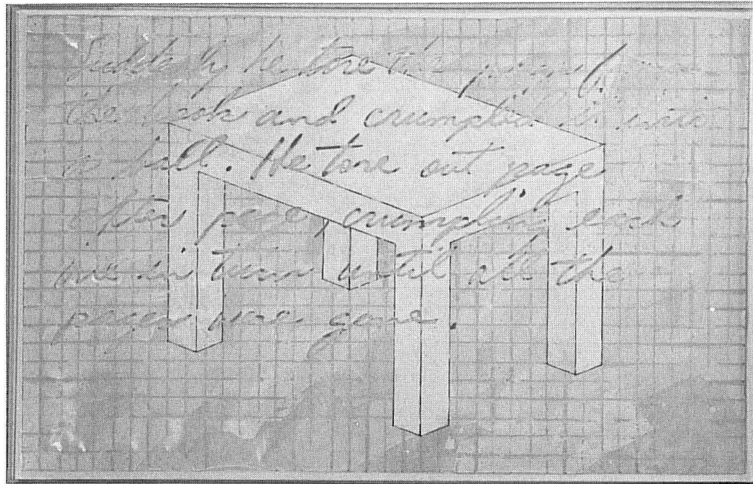 Suddenly he tore the page from
the book and crumpled it into
a ball. He tore out page
after page, crumpling each
one in turn until all the
pages were gone.